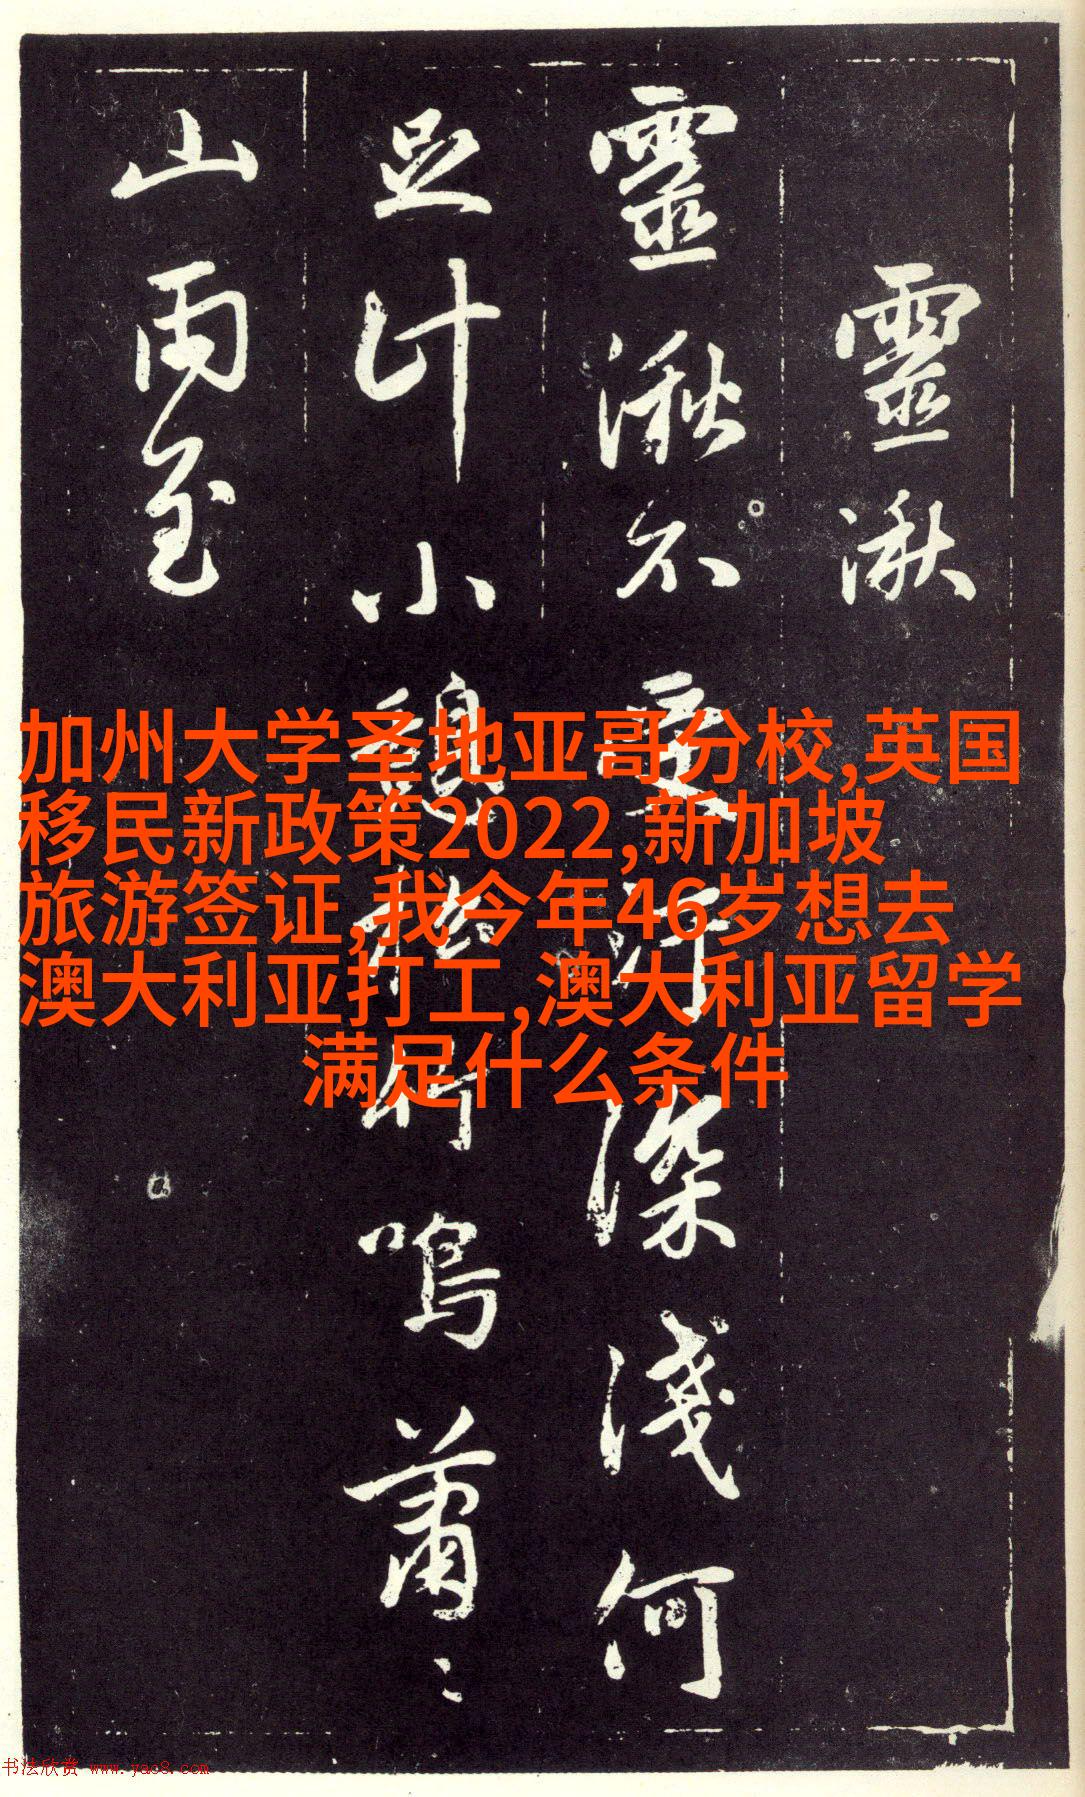 靈湫
靈湫不深淺何
足計小鳴蕭〻
山雨至
加州大学圣地亚哥分校,英国
移民新政策2022,新加坡
旅游签证,我今年46岁想去
澳大利亚打工,澳大利亚留学
满足什么条件
书法欣赏 www.yac8.com